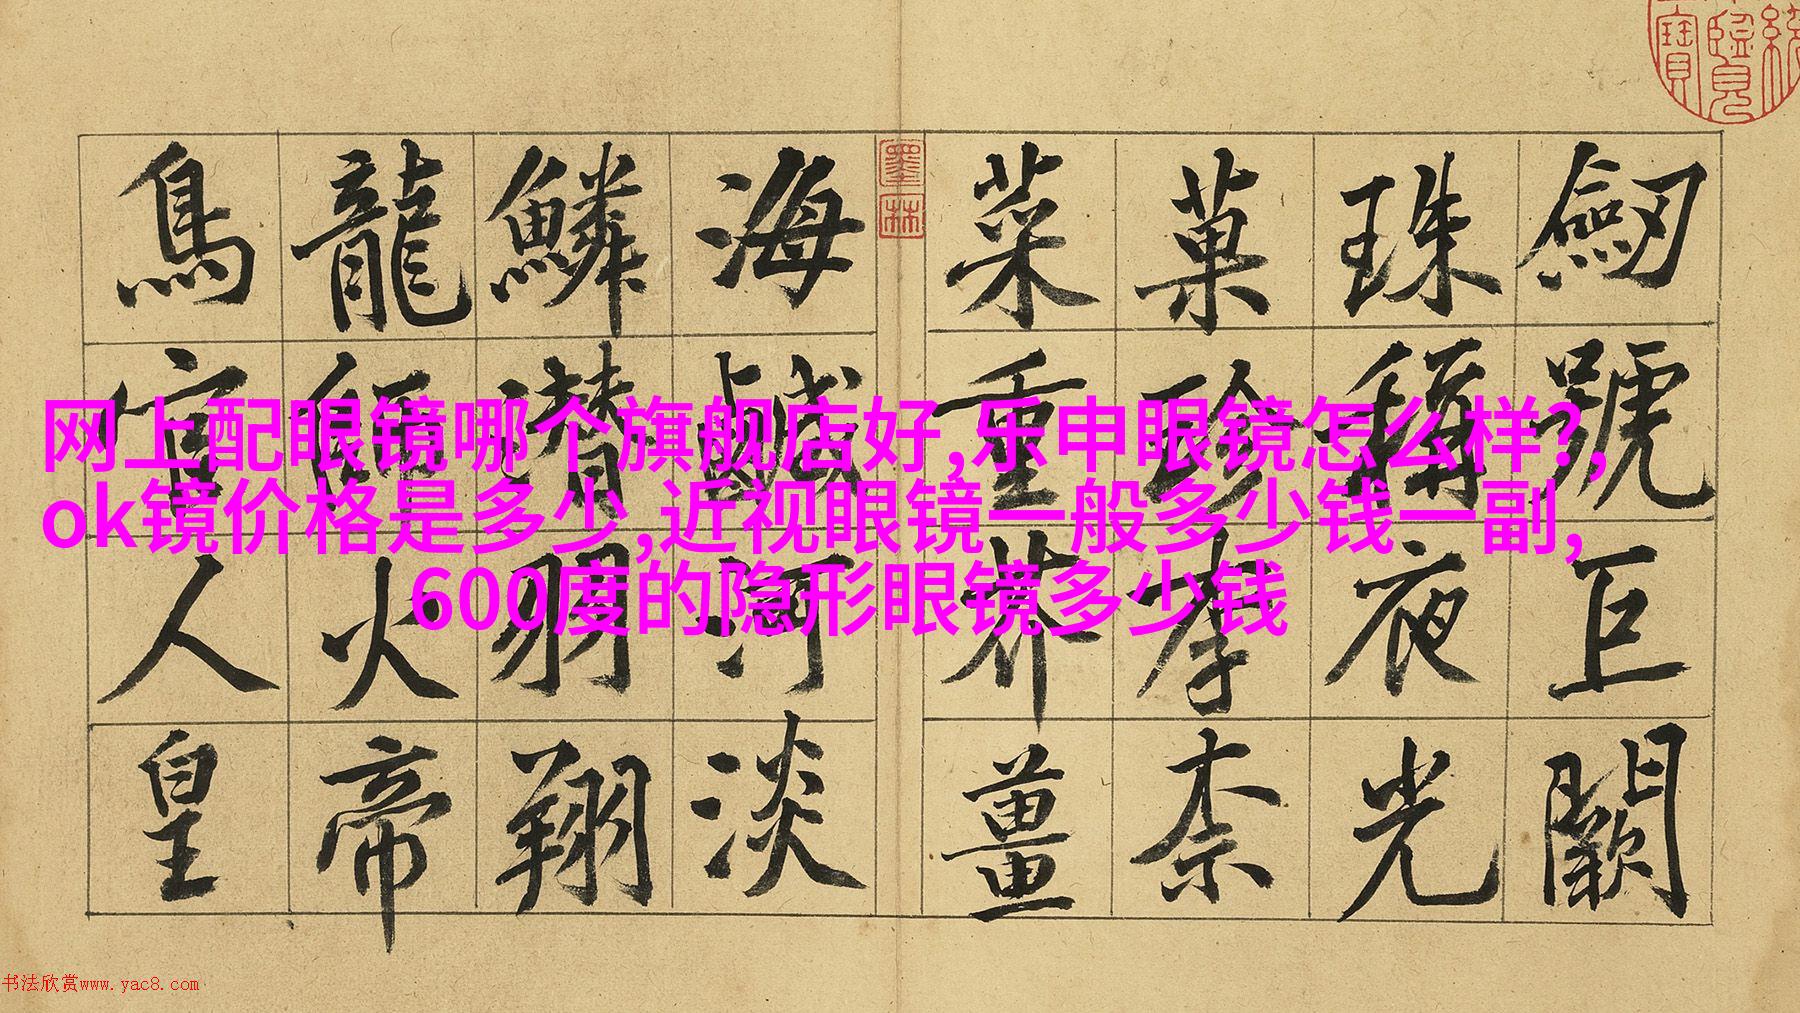 劒號巨闕
珠稱夜光
菓珍李柰
菜重芥薑
海鹹河淡
鱗潛羽翔
龍師火帝
鳥官人皇
墨林
网上配眼镜哪个旗舰店好,乐申眼镜怎么样?,
ok镜价格是多少,近视眼镜一般多少钱一副,
600度的隐形眼镜多少钱
书法欣赏www.yac8.com